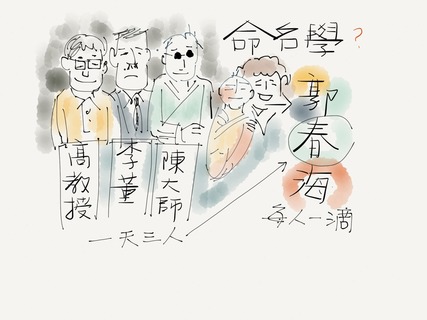 命名學?
高教授
李董
陳大師
郭春海
一天三人
每人一滴